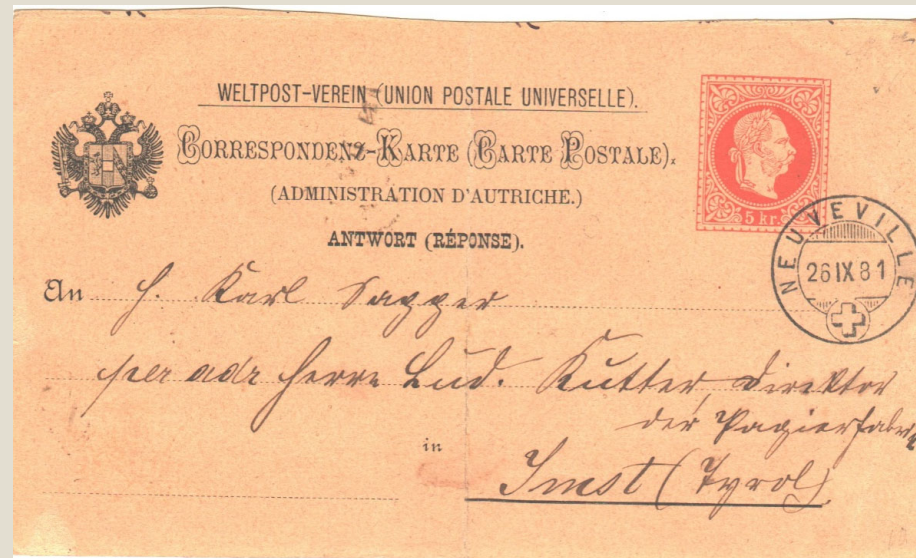 WELTPOST-VEREIN (UNION POSTALE UNIVERSELLE).
CORRESPONDENZ-KARTE (CARTE POSTALE).
(ADMINISTRATION D'AUTRICHE.)
ANTWORT (RÉPONSE).
5 kr.
NEUVEVILLE
26 IX 81
An H. Karl Sapper
per adr Herrn Lud. Kutter, Direktor
der Papierfabrik
in
Imst (Tyrol)